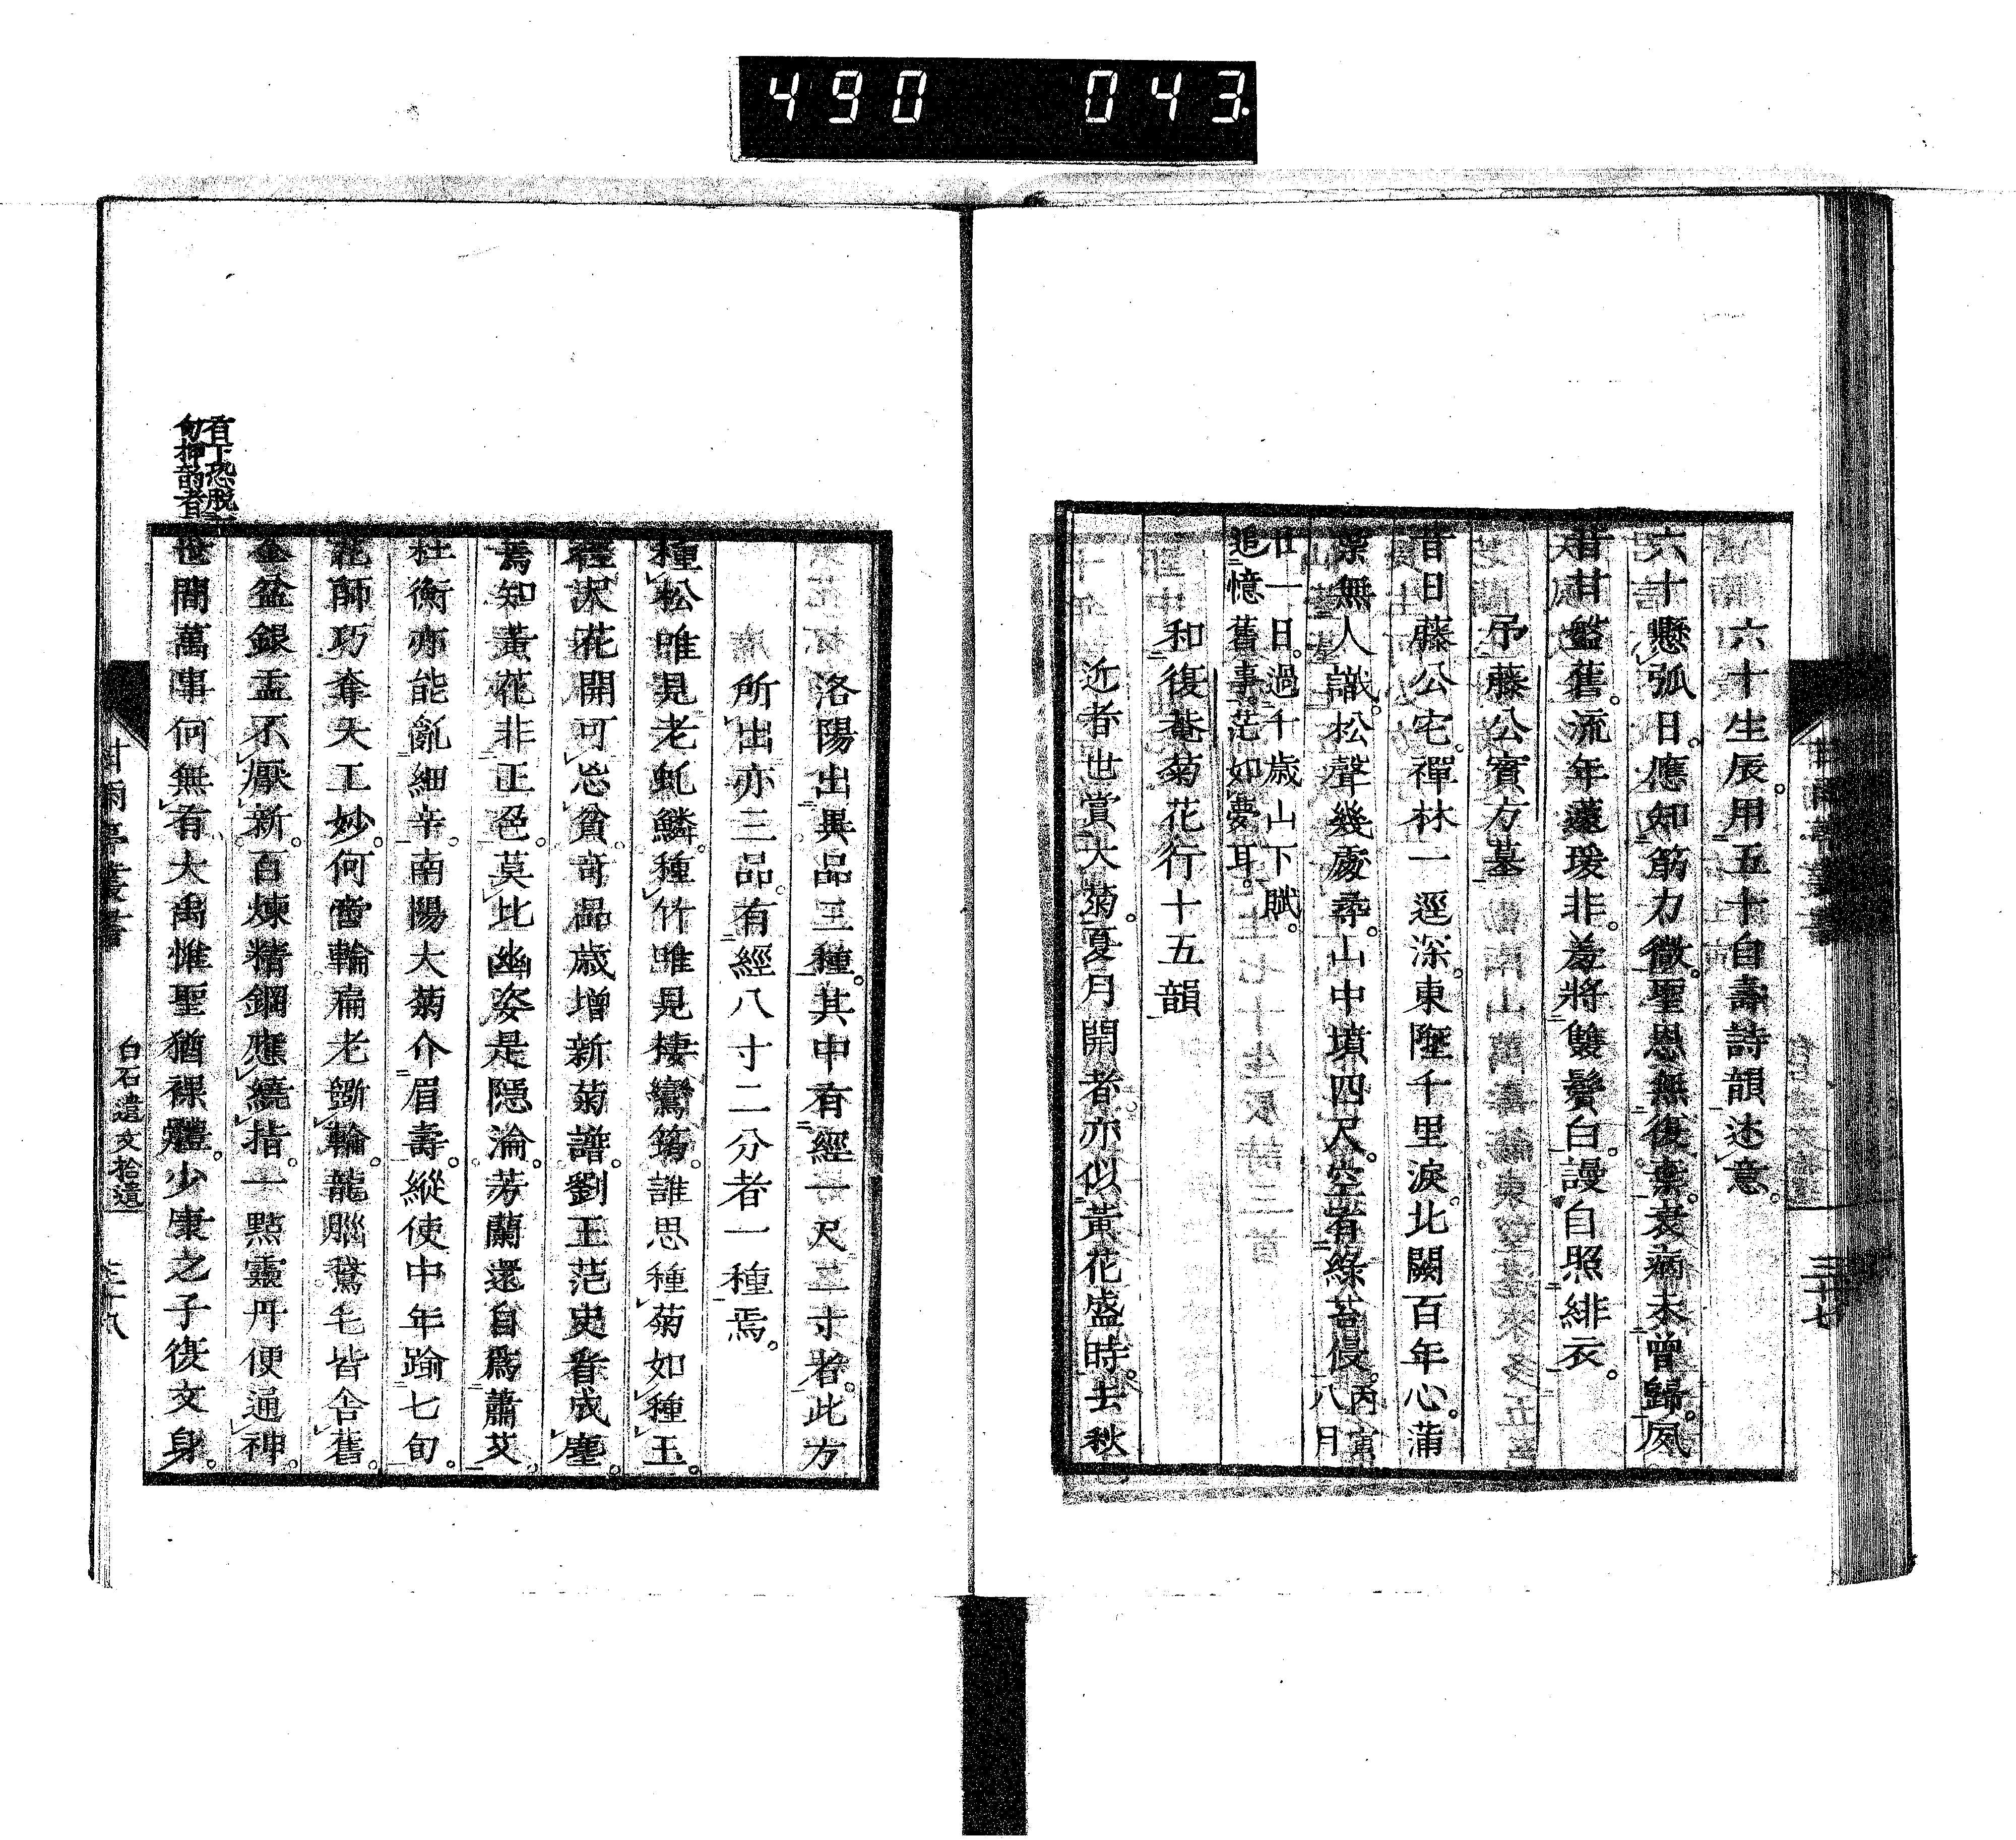 490 043.
六十生辰。用五十自壽詩韻述意。
六十懸弧日。應知筋力微。聖恩無復棄。衰病未曾歸。夙
昔甘盤舊。流年蘧瑗非。羞將雙鬢白。謾自照緋衣。
弔藤公賓方墓
昔日藤公宅。禪林一逕深。東陲千里淚。北闕百年心。蒲
無人識。松聲幾處尋。山中墳四尺。空有綠苔侵。丙寅八月
廿一日。過千歲山下賦。
追憶舊事。茫如夢耳。
和復菴菊花行十五韻
近者世賞大菊。夏月開者亦似黃花盛時。去秋
洛陽出異品三種。其中有經一尺二寸者。此方
所出亦三品。有經八寸二分者一種焉。
種松唯見老虬鱗。種竹唯見棲鸞筠。誰思種菊如種玉。
花開可忘貧。奇品歲增新菊譜。劉王范史看成塵。
焉知黃花非正色。莫比幽姿是隱淪。芳蘭還自爲蕭艾。
杜衡亦能亂細辛。南陽大菊介眉壽。縱使中年踰七旬。
花師巧奪天工妙。何啻輪扁老斲輪。龍腦鵞毛皆舍舊。
金盆銀盂不厭新。百煉精鋼應繞指。一點靈丹便通神。
世間萬事何無有。大禹惟聖猶裸體。少康之子復文身。
有下恐脫一
句押韵者
甘雨亭叢書
白石遺文拾遺
三十八
三十七